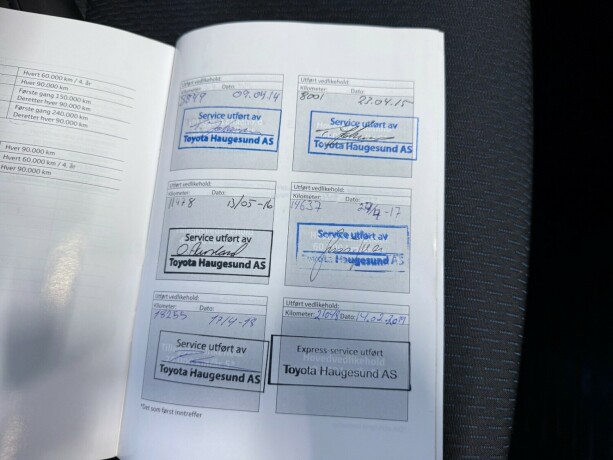 Hvert 60.000 km / 4. år
Hver 90.000 km
Første gang 150.000 km
Deretter hver 90.000 km
Første gang 240.000 km
Deretter hver 90.000 km
Hver 90.000 km
Hvert 60.000 km / 4. år
Hver 90.000 km
Utført vedlikehold:
Kilometer: Dato:
09.04.14
Service utført av
Toyota Haugesund AS
Utført vedlikehold:
Kilometer: Dato:
8001 23.04.15
Service utført av
Toyota Haugesund AS
Utført vedlikehold:
Kilometer: Dato:
11478 13/05-16
Service utført av
Toyota Haugesund AS
Utført vedlikehold:
Kilometer: Dato:
14637 27/4-17
Service utført av
Toyota Haugesund AS
Utført vedlikehold:
Kilometer: Dato:
18255 17/4-18
Service utført av
Toyota Haugesund AS
Utført vedlikehold:
Kilometer: 21048 Dato: 14.02.2019
Express service utført
Hovedvedlikehold
Toyota Haugesund AS
*Det som først inntreffer